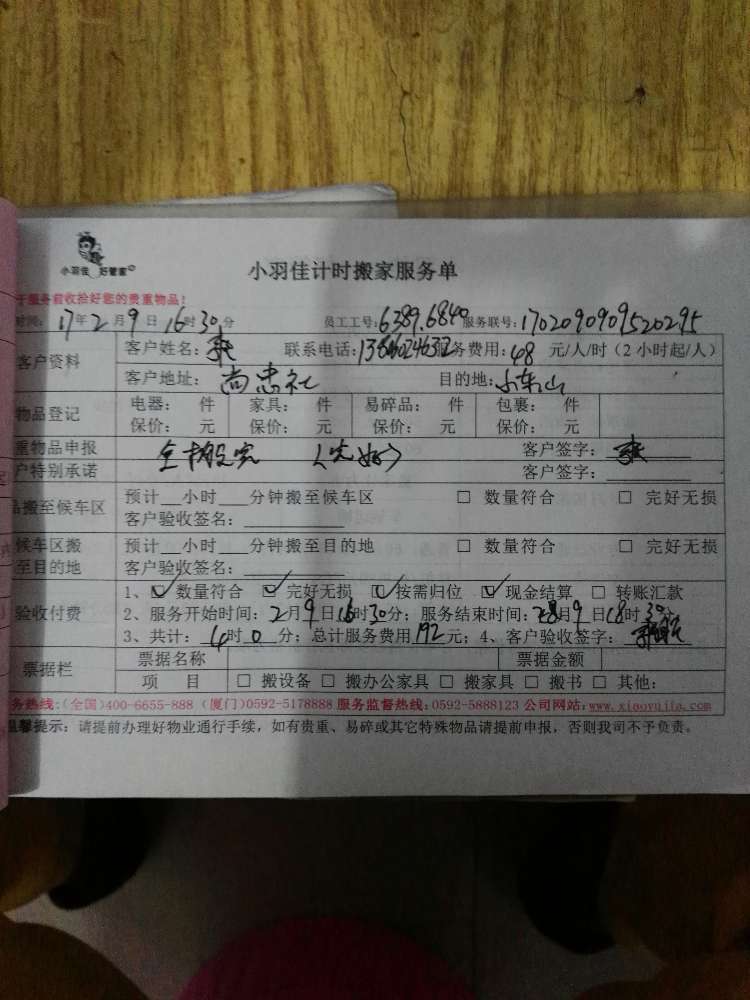 小羽佳 好管家
小羽佳计时搬家服务单
服务前收拾好您的贵重物品!
时间: 17年2月9日16时30分 员工工号: 6389.6840 服务联号: 1702090909520295
客户资料 客户姓名: 联系电话: 务费用: 48 元/人/时 (2 小时起/人)
客户地址: 尚忠社 目的地: 小东山
物品登记 电器: 件 家具: 件 易碎品: 件 包裹: 件
保价: 元 保价: 元 保价: 元 保价: 元
重物品申报 客户签字:
户特别承诺 客户签字:
搬至候车区 预计__小时___分钟搬至候车区 □ 数量符合 □ 完好无损
客户验收签名:
候车区搬至目的地 预计__小时___分钟搬至目的地 □ 数量符合 □ 完好无损
客户验收签名:
验收付费 1、☑ 数量符合 ☑ 完好无损 ☑ 按需归位 ☑ 现金结算 □ 转账汇款
2、服务开始时间: 2月9日16时30分; 服务结束时间: 月9日18时30分
3、共计: 4时0分; 总计服务费用192元; 4、客户验收签字:
票据栏 票据名称 票据金额
项 目 □ 搬设备 □ 搬办公家具 □ 搬家具 □ 搬书 □ 其他:
务热线:(全国)400-6655-888 (厦门)0592-5178888 服务监督热线:0592-5888123 公司网站:www.xiaoyujia.com
温馨提示: 请提前办理好物业通行手续, 如有贵重、易碎或其它特殊物品请提前申报, 否则我司不予负责。